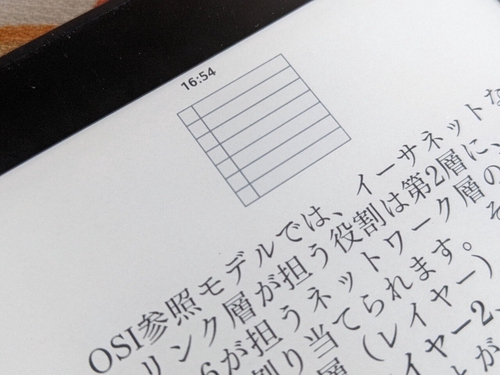 16:54
OSI参照モデルでは、イーサネットな
リンク層が担う役割は第2層に、
6が担うネットワーク層の
割り当てられます。そ
層（レイヤー）
イヤー2、
とが